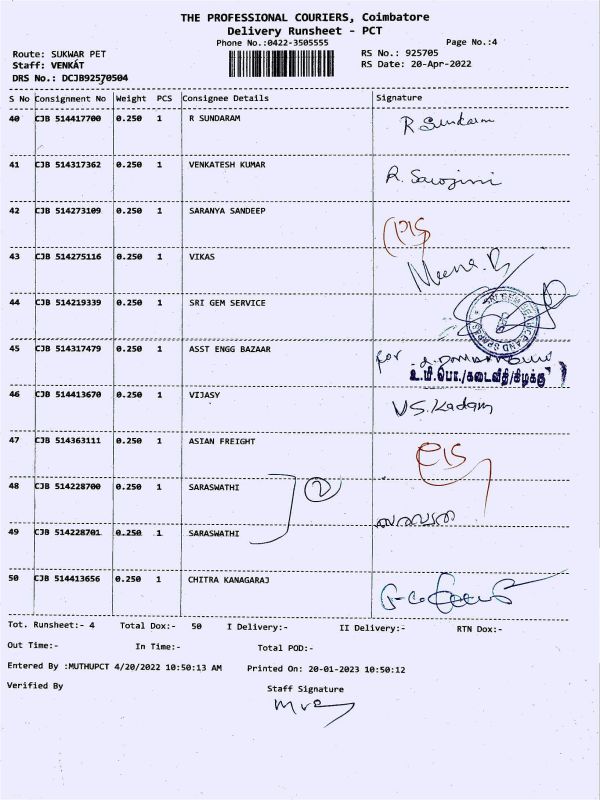 THE PROFESSIONAL COURIERS, Coimbatore
Delivery Runsheet - PCT
Phone No.:0422-3505555 Page No.:4
Route: SUKWAR PET RS No.: 925705
Staff: VENKAT RS Date: 20-Apr-2022
DRS No.: DCJB92570504
S No Consignment No Weight PCS Consignee Details Signature
40 CJB 514417700 0.250 1 R SUNDARAM R Sundaram
41 CJB 514317362 0.250 1 VENKATESH KUMAR R. Sarojini
42 CJB 514273109 0.250 1 SARANYA SANDEEP
43 CJB 514275116 0.250 1 VIKAS Meena.R
44 CJB 514219339 0.250 1 SRI GEM SERVICE
45 CJB 514317479 0.250 1 ASST ENGG BAZAAR for
உ.மி.பொ./கடைவீதி/கிழக்கு
46 CJB 514413670 0.250 1 VIJASY VS.Kadam
47 CJB 514363111 0.250 1 ASIAN FREIGHT
48 CJB 514228700 0.250 1 SARASWATHI 2
49 CJB 514228701 0.250 1 SARASWATHI
50 CJB 514413656 0.250 1 CHITRA KANAGARAJ
Tot. Runsheet:- 4 Total Dox:- 50 I Delivery:- II Delivery:- RTN Dox:-
Out Time:- In Time:- Total POD:-
Entered By :MUTHUPCT 4/20/2022 10:50:13 AM Printed On: 20-01-2023 10:50:12
Verified By Staff Signature